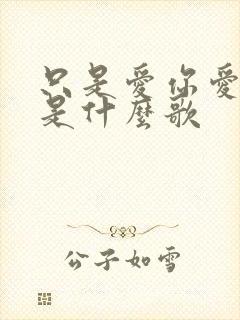 只是愛你愛
是什麼歌
公子如雪